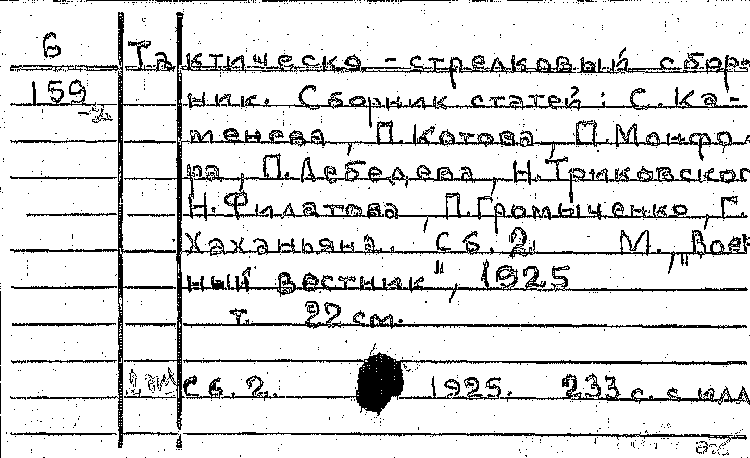 6 Тактическо - стрелковый сбор
159 ник. Сборник статей: С. Ка-
-2 менева, П. Котова, П. Монфо
ра, П. Лебедева, Н. Триковског
Н. Филатова, П. Громыченко, Г.
Хаханьяна. Сб. 2. М., „Воен
ный вестник", 1925
т. 22 см.
Сб. 2. 1925. 233 с. с илл